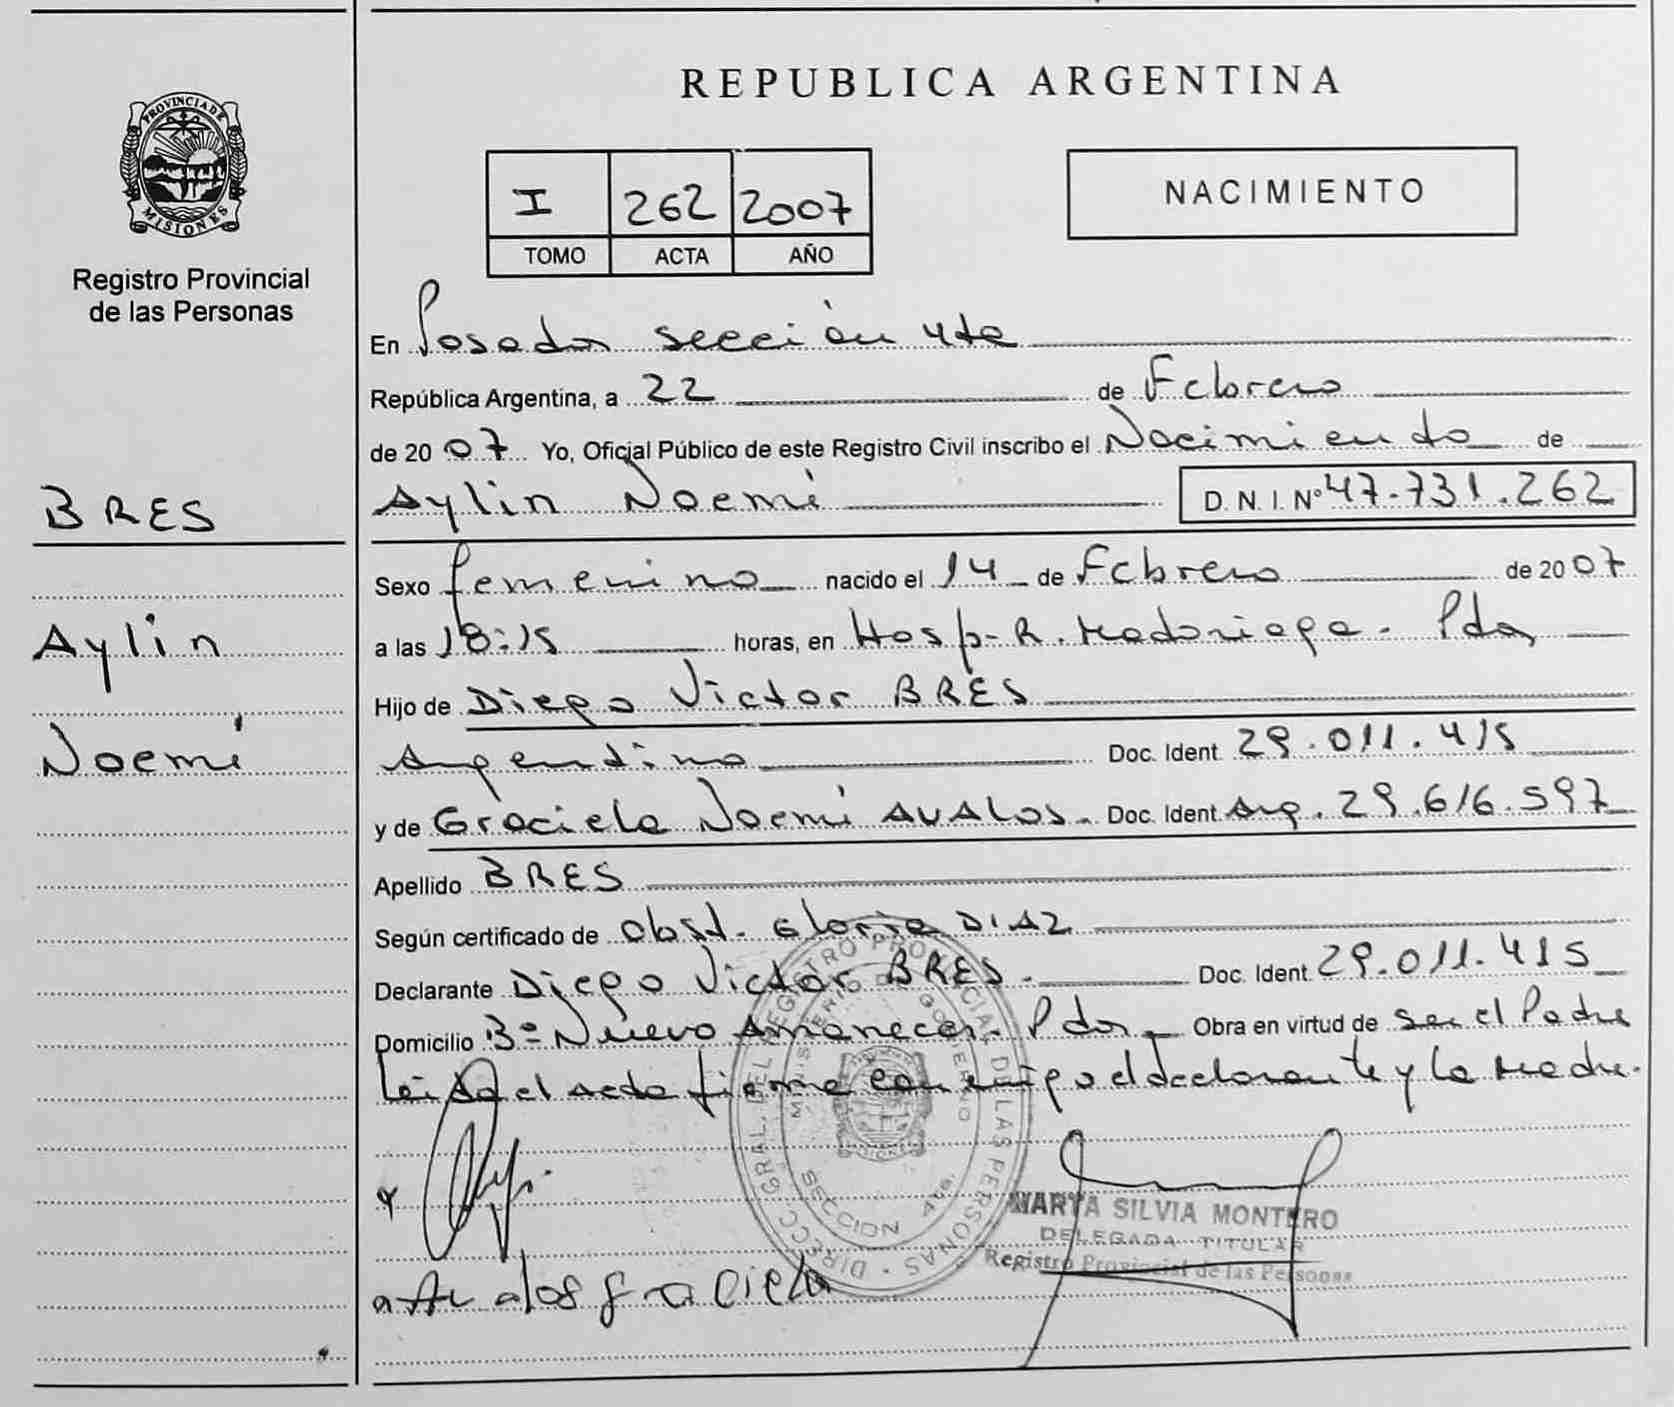 PROVINCIA DE
MISIONES
Registro Provincial
de las Personas
BRES
Aylin
Noemí
REPUBLICA ARGENTINA
I 262 2007
TOMO ACTA AÑO
NACIMIENTO
En Posadas sección 4ta
República Argentina, a 22 de Febrero
de 2007 Yo, Oficial Público de este Registro Civil inscribo el Nacimiento de
Aylin Noemí D.N.I. Nº 47.731.262
Sexo femenino nacido el 14 de Febrero de 2007
a las 18:15 horas, en Hosp. R. Madariaga. Pdas
Hijo de Diego Victor BRES
Argentino Doc. Ident. 29.011.415
y de Graciela Noemí AVALOS. Doc. Ident. Arg. 29.616.597
Apellido BRES
Según certificado de Obst. Gloria DIAZ
Declarante Diego Victor BRES. Doc. Ident. 29.011.415
Domicilio Bº Nuevo Amanecer. Pdas Obra en virtud de ser el Padre
Leida el acta firma conmigo el declarante y la Madre.
DIRECC. GRAL. DEL REGISTRO PROVINCIAL DE LAS PERSONAS
MINISTERIO DE GOBIERNO
SECCION 4ta
MARTA SILVIA MONTERO
DELEGADA TITULAR
Registro Provincial de las Personas
Avalos graciela